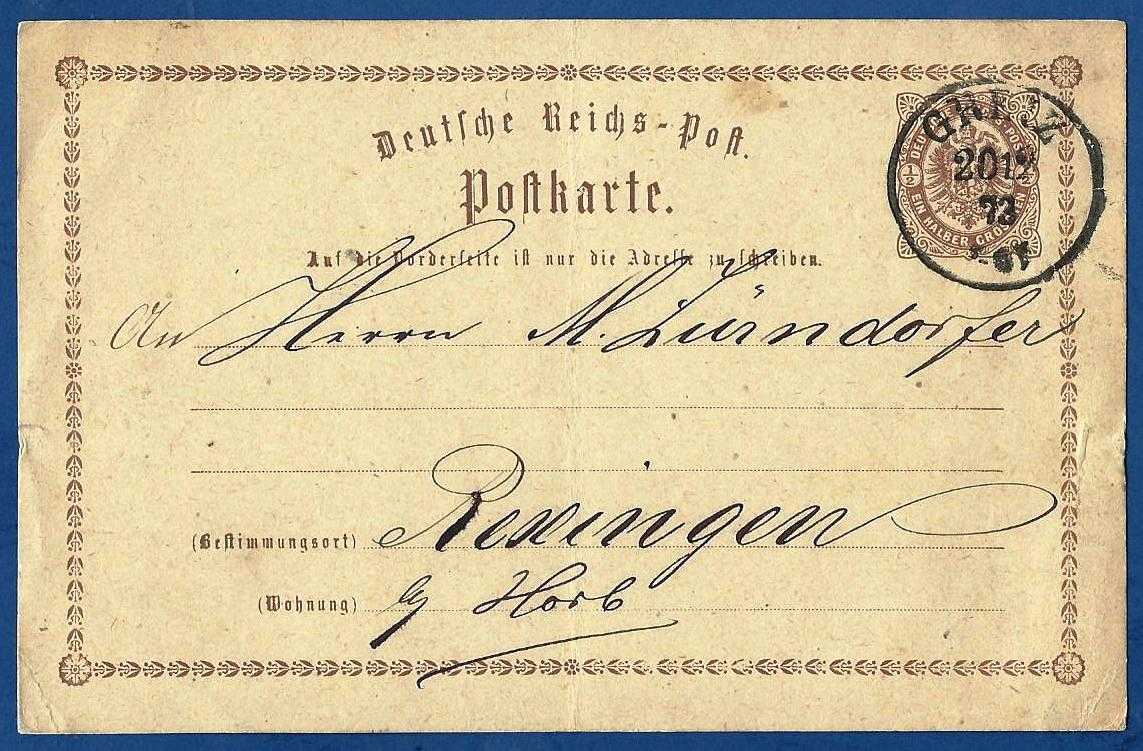 Deutsche Reichs-Post.
Postkarte.
Auf die Vorderseite ist nur die Adresse zu schreiben.
DEUTSCHE POST
½ ½
EIN HALBER GROSCHEN
GREIZ
20 12
73
An Herrn M. Zürndorfer
(Bestimmungsort) Rexingen
(Wohnung) b/ Horb